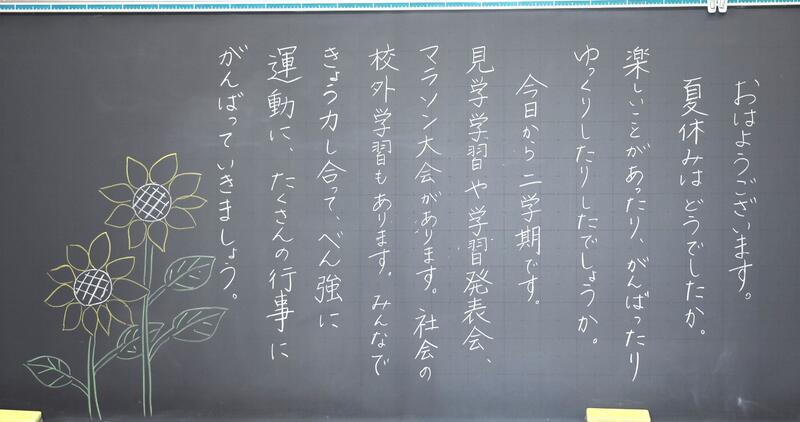 おはようございます。
夏休みはどうでしたか。
楽しいことがあったり、がんばったり
ゆっくりしたりしたでしょうか。
今日から二学期です。
見学学習や学習発表会、
マラソン大会があります。社会の
校外学習もあります。みんなで
きょう力し合って、べん強に
運動に、たくさんの行事に
がんばっていきましょう。